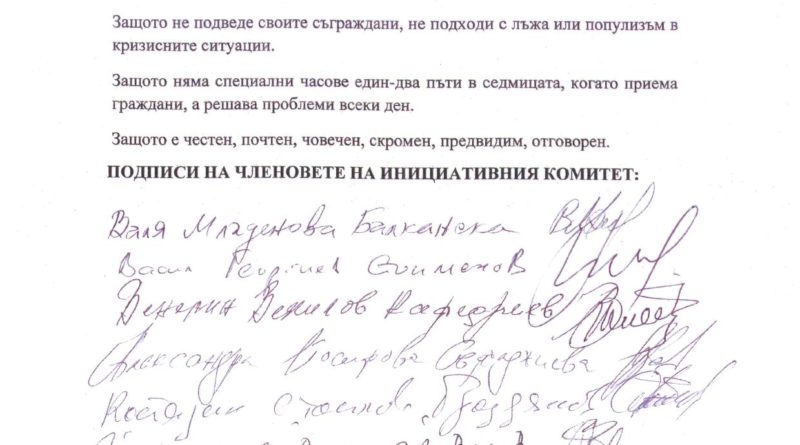 Защото не подведе своите съграждани, не подходи с лъжа или популизъм в
кризисните ситуации.
Защото няма специални часове един-два пъти в седмицата, когато приема
граждани, а решава проблеми всеки ден.
Защото е честен, почтен, човечен, скромен, предвидим, отговорен.
ПОДПИСИ НА ЧЛЕНОВЕТЕ НА ИНИЦИАТИВНИЯ КОМИТЕТ:
Валя Младенова Балканска
Васил Георгиев
Венерин Венилов
Александра
Костадин Стоилов